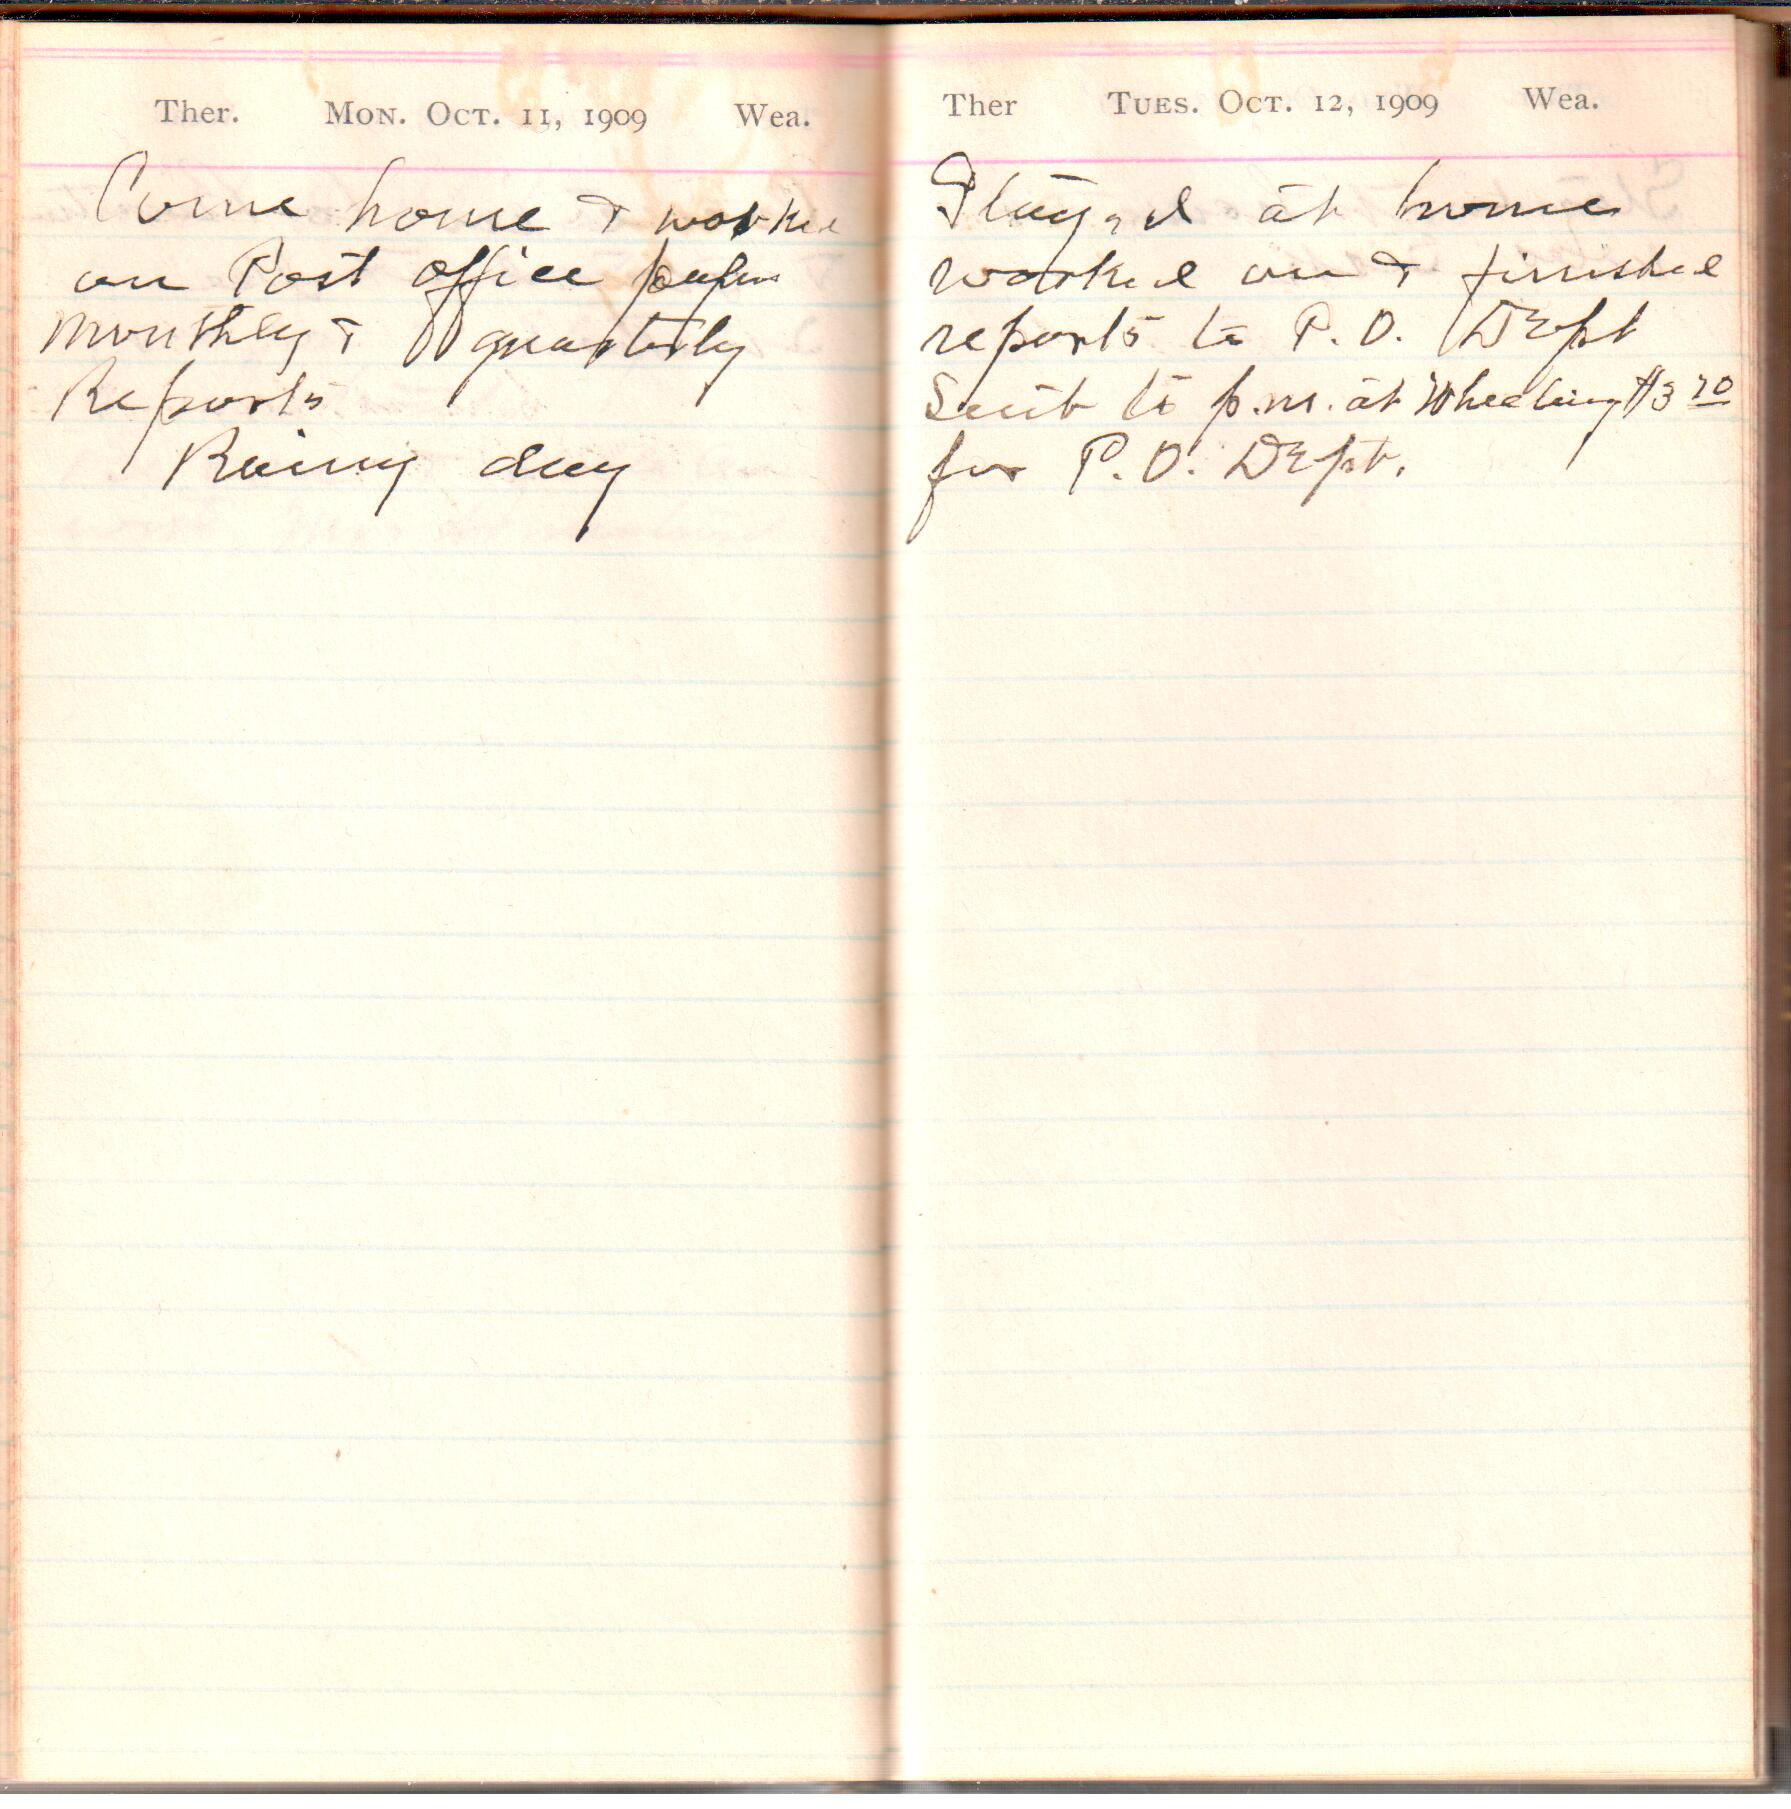 Ther. Mon. Oct. 11, 1909 Wea.
Come home & worked
on Post office papers
monthly & quarterly
Reports
Rainy day
Ther Tues. Oct. 12, 1909 Wea.
Stayed at home
worked on & finished
reports to P. O. Dept
Sent to p.m. at Wheeling $3 20
for P. O. Dept.